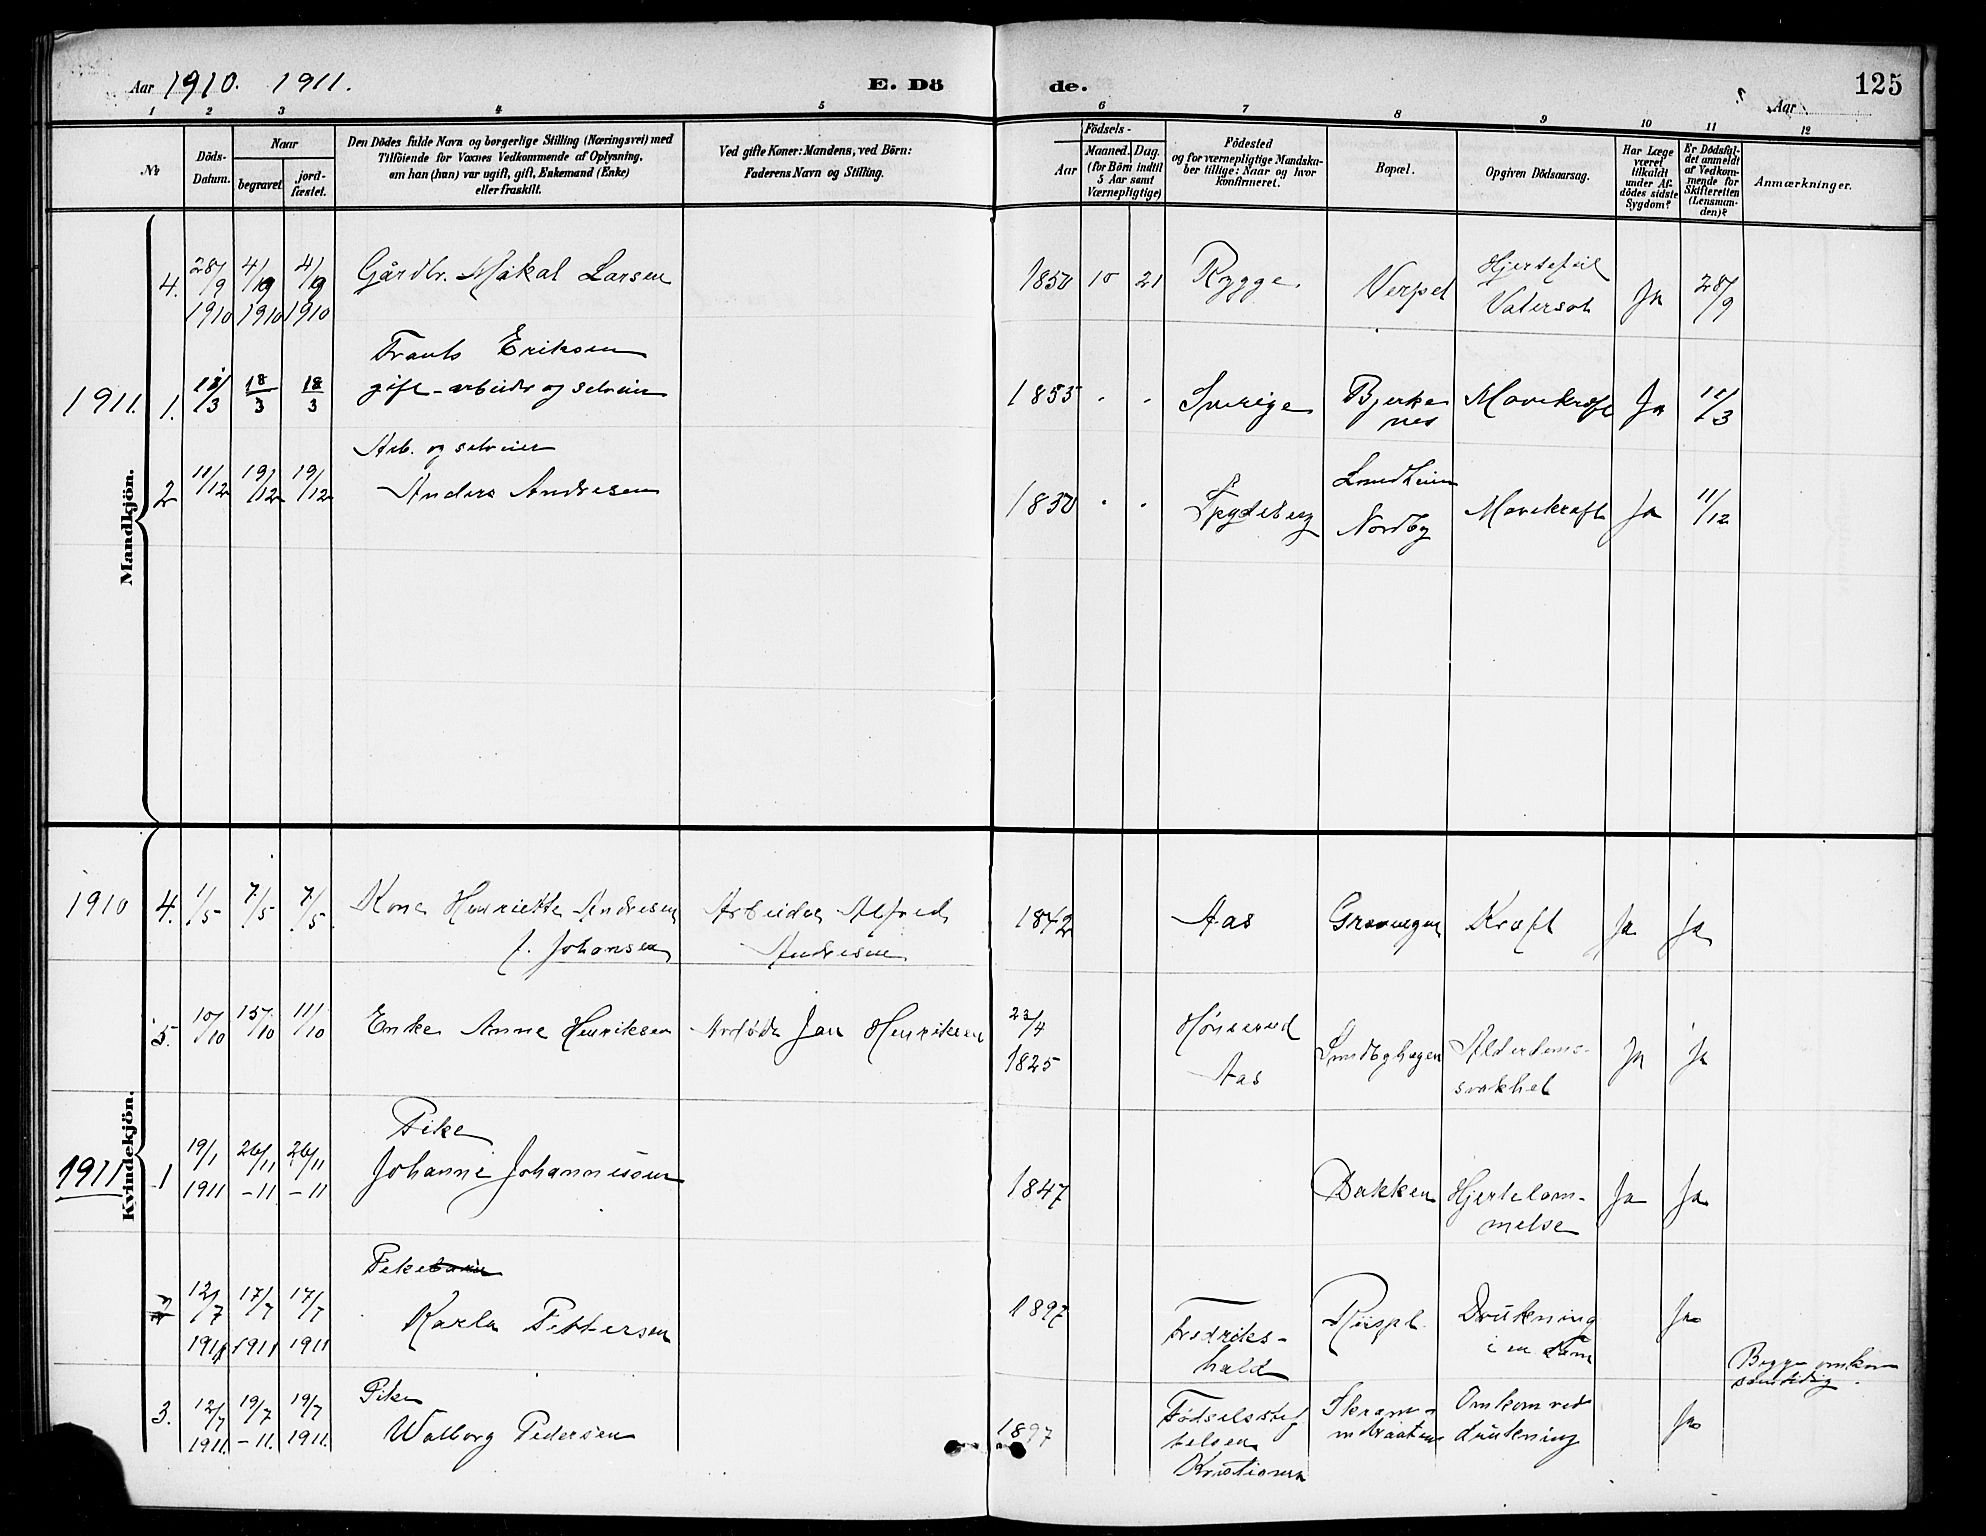 Aar 1910. 1911.
E. Dö de.
Aar
125
1 2 3 4 5 6 7 8 9 10 11 12
Nr
Döds-Datum.
Naar
begravet.
jordfæstet.
Den Dödes fulde Navn og borgerlige Stilling (Næringsvei) med
Tilföiende for Voxnes Vedkommende af Oplysning,
om han (hun) var ugift, gift, Enkemand (Enke)
eller fraskilt.
Ved gifte Koner: Mandens, ved Börn:
Faderens Navn og Stilling.
Födsels-
Aar
Maaned. Dag.
(for Börn indtil
5 Aar samt
Værnepligtige)
Födested
og for værnepligtige Mandskaber tillige: Naar og hvor
konfirmeret.
Bopæl.
Opgiven Dödsaarsag.
Har Læge
været
tilkaldt
under Afdödes sidste
Sygdom?
Er Dödsfaldet anmeldt
af Vedkommende for
Skifteretten
(Lensmanden)?
Anmærkninger.
Mandkjön.
4. 28/9 1910 4/10 1910 4/10 1910 Gårdbr. Mikal Larsen 1850 10 21 Rygge Verpet Hjertefeil Vatersot Ja 28/9
1911. 1. 11/3 18/3 18/3 Frants Eriksen
gift - arbeider og selveier 1855 Sverige Bjerkenes Mavekræft Ja 11/3
Arb. og selveier
2 11/12 19/12 19/12 Anders Andresen 1850 Spydeberg Nordby Mavekræft Ja 11/12
Kvindekjön.
1910 4. 1/5 7/5 7/5 Kone Henriette Andresen
f. Johansen Arbeider Alfred
Andresen 1842 Aas Kræft Ja Ja
5. 10/10 15/10 11/10 Enke Anne Henriksen Jan Henriksen 23/4
1825 Aas Alderdomssvakhet Ja Ja
1911 1 19/1 1911 26/11 -11 26/11 -11 Pike
Johanne Johannessen 1847 Bakken Hjertelammelse Ja Ja
2 12/7 1911 17/7 1911 17/7 1911 Pike
Karla Pettersen 1897 Fredrikshald Riispl. Drukning
i en Dam Ja
Begge omkom
samtidig.
3. 12/7 1911. 19/7 -11. 19/7 1911. Pike
Walborg Pedersen 1897 Fødselsstiftelsen
Kristiania Omkom ved
drukning Ja